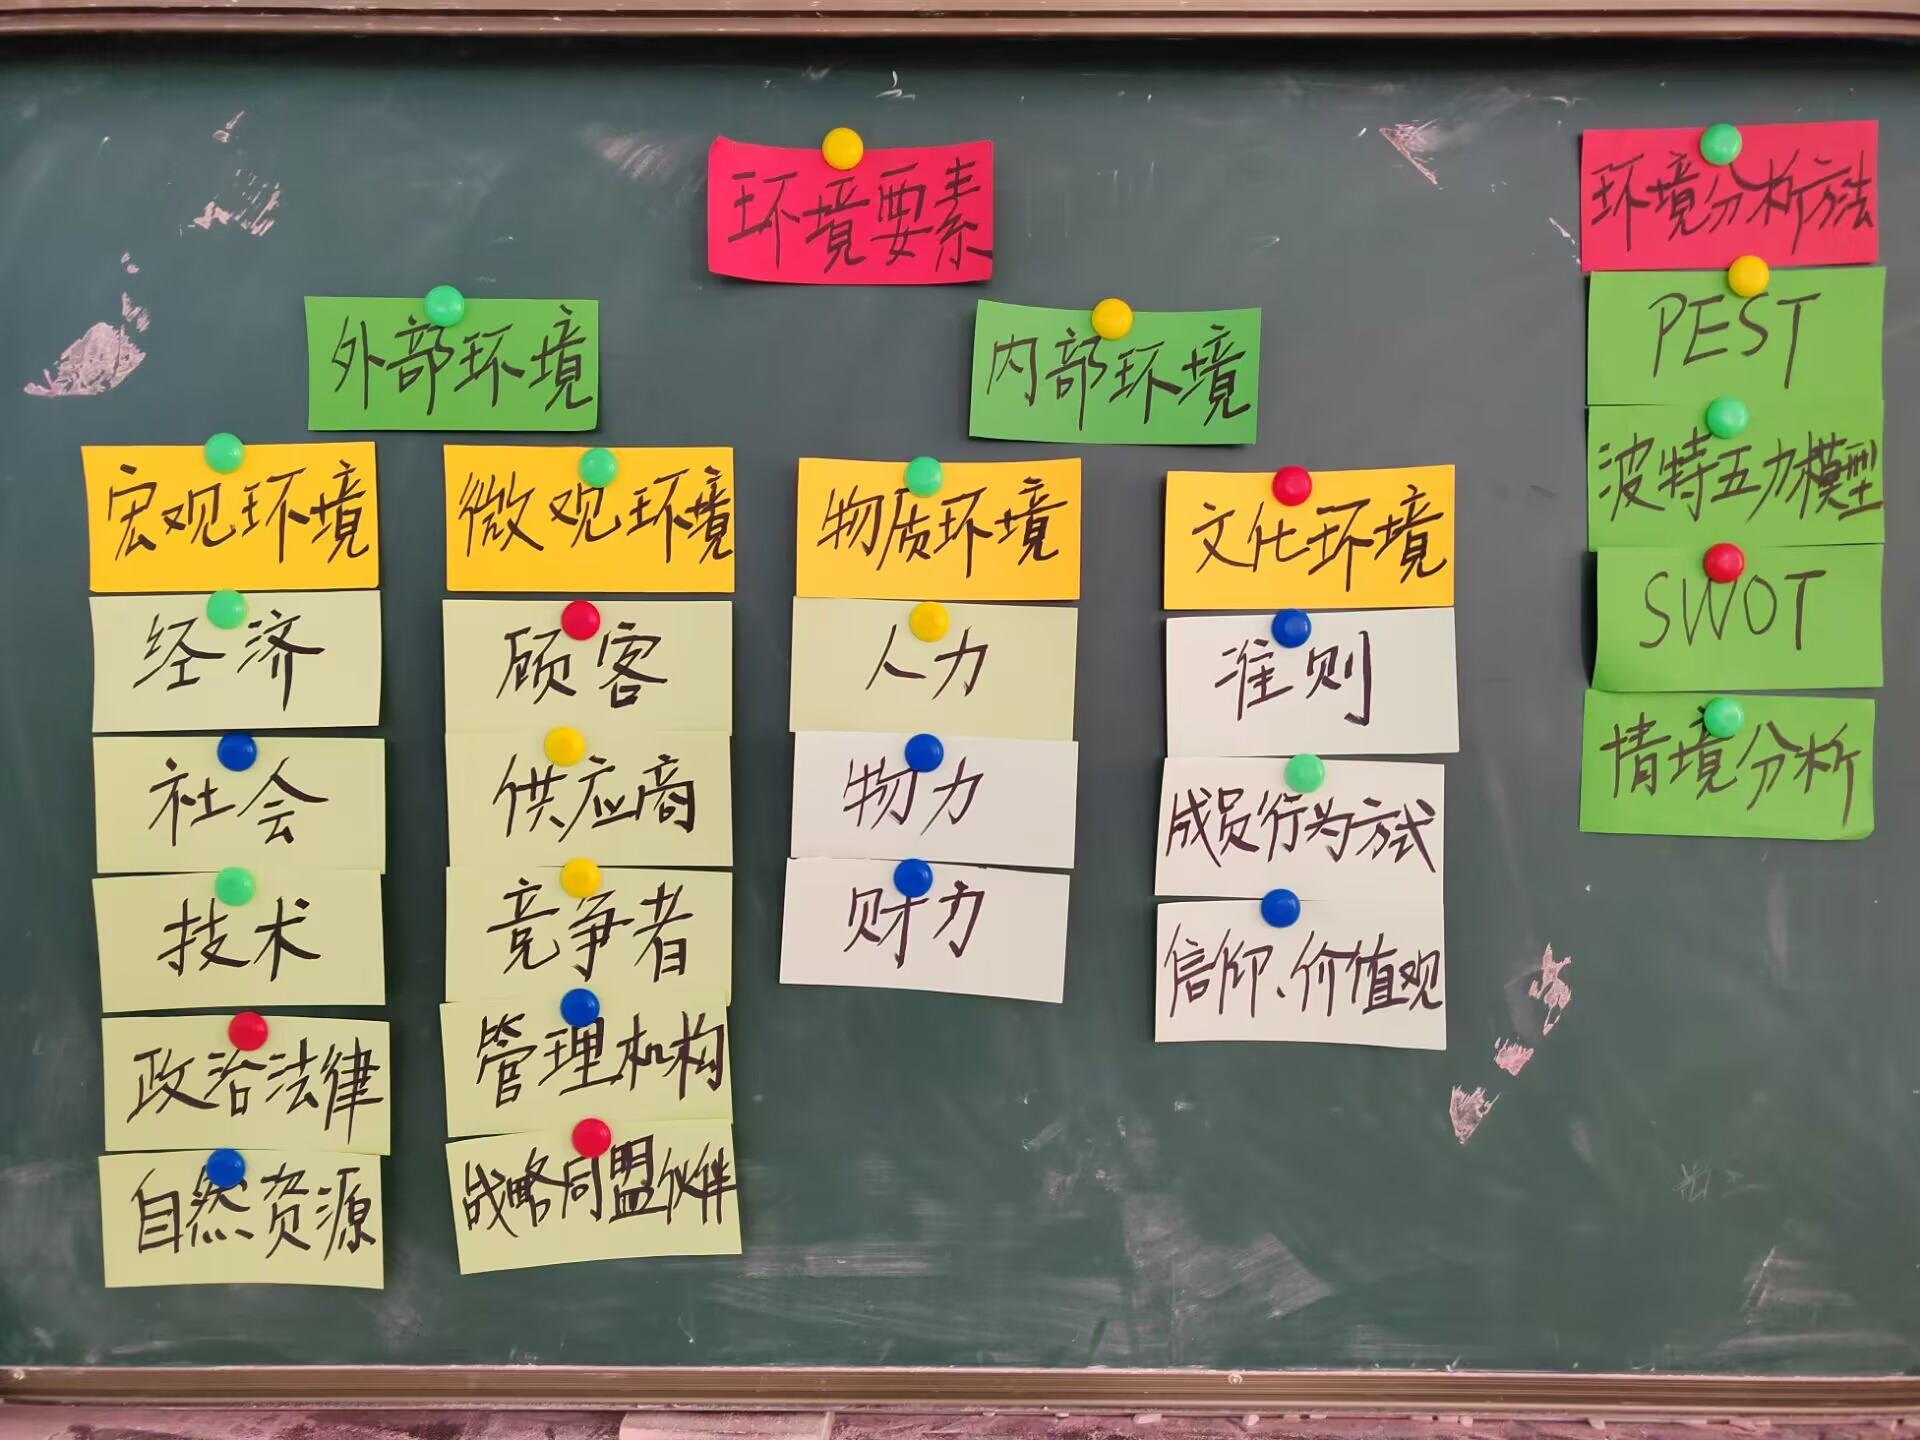 环境要素
外部环境
内部环境
宏观环境
经济
社会
技术
政治法律
自然资源
微观环境
顾客
供应商
竞争者
管理机构
战略同盟伙伴
物质环境
人力
物力
财力
文化环境
准则
成员行为方式
信仰、价值观
环境分析方法
PEST
波特五力模型
SWOT
情境分析